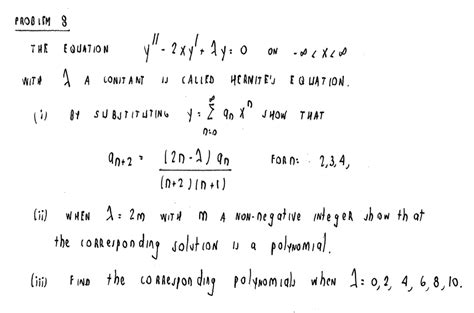 PROBLEM 8
THE EQUATION y'' - 2xy' + λy = 0 ON -∞ < x < ∞
WITH λ A CONSTANT IS CALLED HERMITE'S EQUATION.
(i) BY SUBSTITUTING y = ∑_{n=0}^{∞} a_n x^n SHOW THAT
a_{n+2} = (2n - λ) a_n / (n+2)(n+1) FOR n = 2,3,4,
(ii) WHEN λ = 2m WITH m A NON-negative integer show that
the CORResponding solution is a polynomial.
(iii) FIND the CORResponding polynomials when λ = 0, 2, 4, 6, 8, 10.